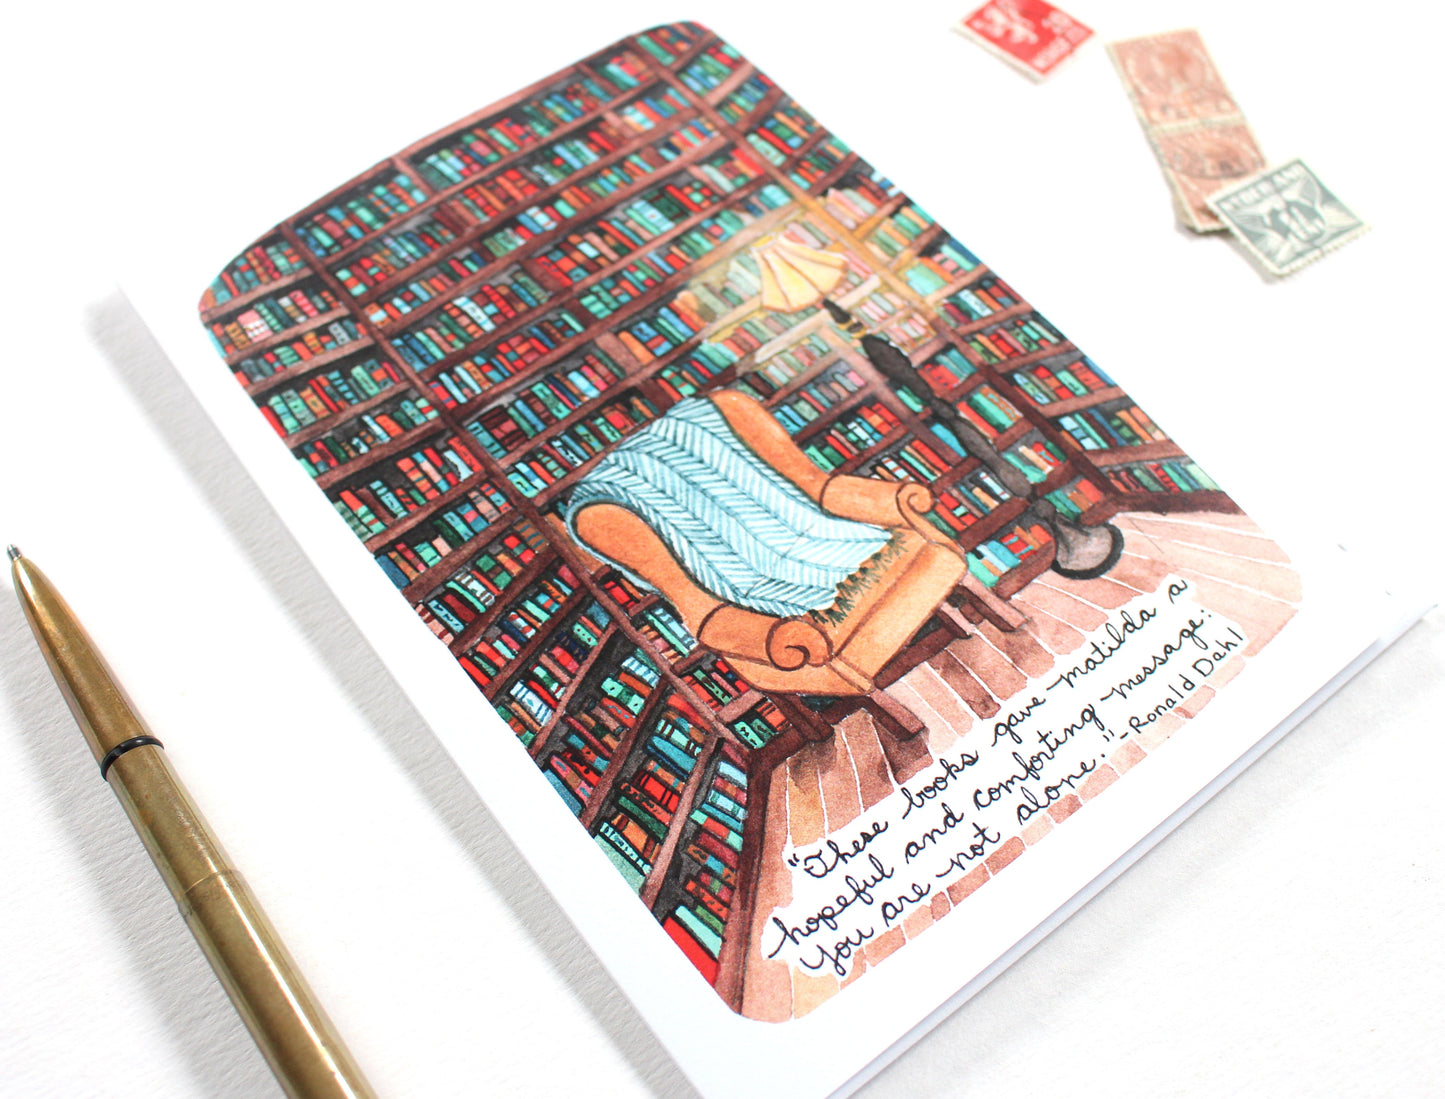 "These books gave Matilda a
hopeful and comforting message:
You are not alone." -Ronald Dahl